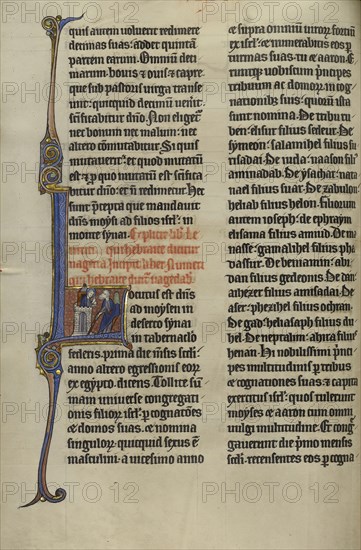 quis autem voluerit redimere
decimas suas: addet quintā
partem earum. Omniū deci
marum bouis & ouis & capre
que sub pastoris uirga transie
runt: quicquid decimū uenit:
sctificabit̄ dño. Non eliget̄
nec bonum nec malum: nec
altero cōmutabitur. Si quis
mutauerit: & quod mutatū
est & p quo mutatū est: sctifica
bit̄ dño: & ñ redimet̄. Hec
sunt p̄cepta que mandauit
dñs moysi ad filios isrl̄ in
monte synai.
Explicit lib̄ Le
uitici qui hebraice dicitur
Incipit liber Numeri
qui hebraice dicit̄
Locutus est dñs
ad moysen in
deserto synai
in tabernaclo
federis. prima die mēsis scd̄i:
anno altero egressionis eorū
ex egypto. dicens. Tollite sum
mam uniuerse congregati
onis filiorū isrl̄ p cognatōes
& domos suas. & nomina
singulorū: quicquid sexus ē
masculini. a uicesimo anno
& supra omniū uirorū fortiū
ex isrl̄. & numerabitis eos p
turmas suas tu & aaron. E
runtque uobiscum p̄ncipes
tribuum ac domorū in cog
nationibus suis: quorū ista
sunt nomina. De ru
ben: elisur filius sedeur. De
symeon: salamihel filius su
risadai. De iuda: naason filiꝰ
aminadab. De ysachar: nata
nael filius suar. De zabulon:
heliab filius helon. filiorum
autem ioseph: de ephraym
elisama filius amiud. De ma
nasse: gamalihel filius pha
dassur. De beniamin: abi
dan filius gedeonis. De dan:
ahiezer filius amisadai. De
aser: phegihel filius ochran.
De gad: heliasaph filius du
hel. De neptalim: ahira filius
henan. Hi nobilissimi p̄nci
pes multitudinis p tribus
& cognationes suas & capita
exercitus isrl̄: quos tulerunt
moyses & aaron cum omni
uulgi multitudine. Et congre
gauerunt die p̄mo mensis
scd̄i. recensentes eos p cogna